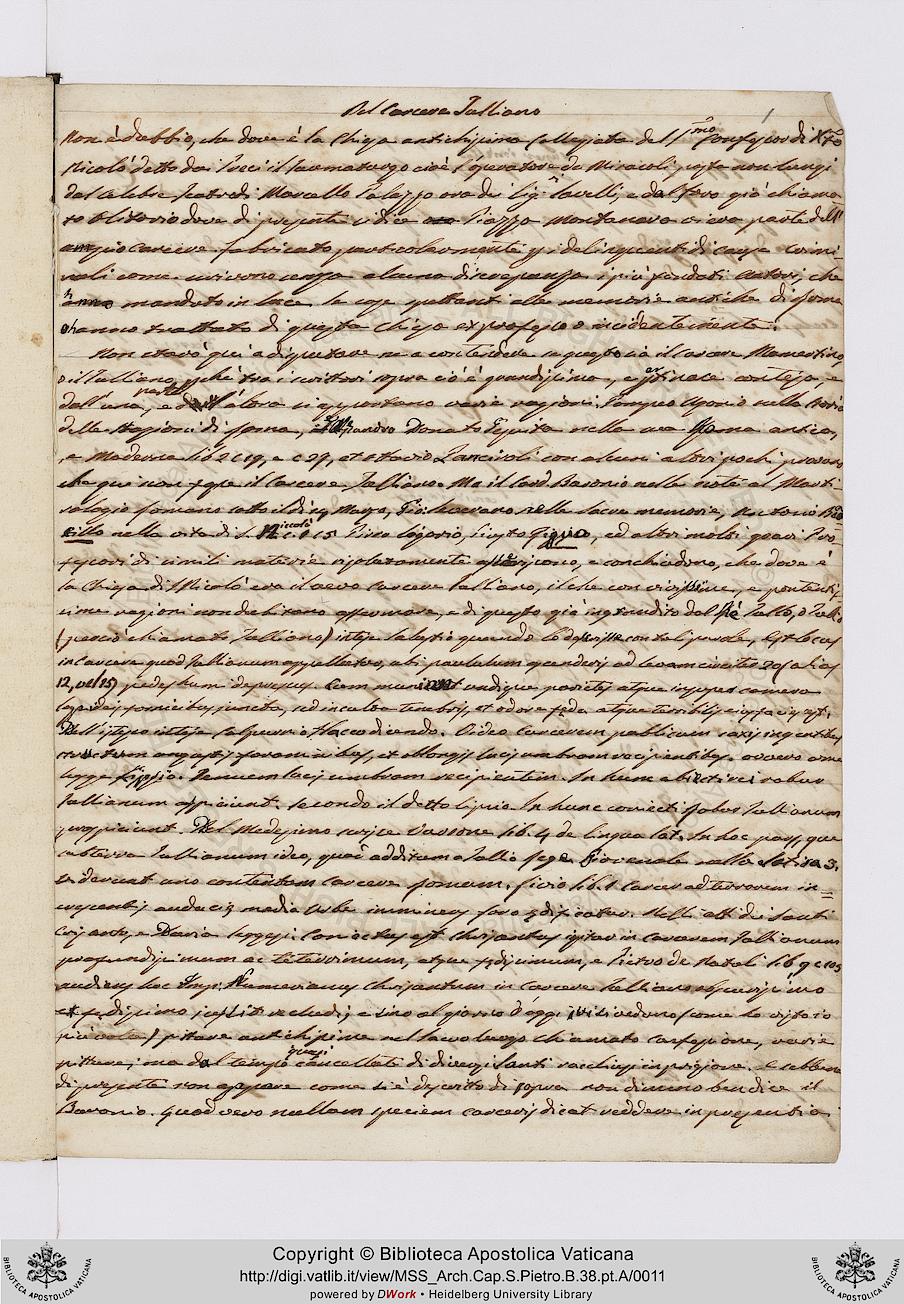 Del Carcere Tulliano
1
Non è dubbio, che dove è la Chiesa antichissima Collegiata del S.mo Confessor di Xpo
Nicolò detto dai Greci il Taumaturgo cioè l'operatore de Miracoli, posta non lungi
dal celebre Teatro di Marcello Palazzo ora de Sig. Savelli, e dal Foro già chiama-
to Olitorio dove di presente si dice Piazza Montanara vi era parte dell'
carcere fabricato particolarmente p i delinquenti di cause crimi-
nali come scrivono senza alcuna discrepanza i più fondati Autori, che
anno mandato in luce le cose spettanti alle memorie antiche di Roma
o hanno trattato di questa Chiesa ex professo o incidentemente.
Non starò quì a disputare ne a contendere se questo sia il carcere Mamertino,
o il Tulliano, pchè tra i scrittori sopra ciò è grandissima, e pertinace contesa, e
dall'una, e dall'altra parte si apportano varie ragioni. Pompeo Ugonio nella Storia
delle Stazioni di Roma, Alessandro Donato Gesuita nella sua Roma antica,
e Moderna lib. 2 c. 19, e c. 27, et Ottavio Pancivoli con alcuni altri pochi provano
che qui non fosse il Carcere Tulliano. Ma il Card. Baronio nelle note al Marti-
rologio Romano sotto il dì 14 Marzo, Gio. Severano nelle sacre memorie, Antonio
nella vita di S. Niccolò Pirro Ligorio, Giusto Lipsio, ed altri molti gravi Pro-
fessori di simili materie risolutamente asseriscono, e conchiudono, che dove è
la Chiesa di S. Nicolò era il vero carcere Tulliano, il che con vivissime, e potentis-
sime ragioni non dubitano affermare, e di questo già ingrandito dal Rè Tullo, o Tullio
(perciò chiamato Tulliano) intese Salustio quando lo descrisse con tali parole, Est locus
in Carcere quod Tullianum appellatur, ubi paululum ascenderis ad levam circiter 20 (alias
12, vel 15) pedes humi depressus. Eum muniunt undique parietes atque insuper camera
lapideis fornicibus juncta, sed inculta tenebris, et odore fęda atque terribilis ejus facies est.
Dell'istesso intese Calpurnio Flacco dicendo. Video carcerem publicum saxis ingentibus
structum angustis foraminibus, et oblongis lucis umbram recipientibus. ovvero come
legge Lipsio. Tenuem lucis umbram recipientem. In hunc abjecti rei robur
Tullianum aspiciunt. secondo il detto Lipsio. In hunc conjecti Robur Tullianum
prospiciunt. Del medesimo scrisse Varrone lib. 4 de lingua Lat. In hoc pars, que
sub terra Tullianum ideo, quod additum a Tullio Rege. Giovenale nella Satira 3.
Viderunt uno contentam carcere Romam. Livio lib. 1 Carcer ad terrorem in=
crescentis audacię media Urbe imminens foro ędificatur. Nelli atti di Santi
Crisanto, e Daria leggesi. Conjectus est Chrisantus igitur in carcerem Tullianum
profundissimum ac teterrimum, atque fędissimum, e Pietro de Natali lib. 9 c. 105
audiens hoc Imp. Numerianus Chrisantum in Carcere Tulliano obscurissimo
et fędissimo jussit recludi; e sino al giorno d'oggi ivi si vedono (come ho visto io
più volte) pitture antichissime nel sacro luogo chiamato confessione, varie
pitture, ma dal tempo quasi cancellate di diversi Santi racchiusi in prigione. E sebbene
di presente non appare come si è descritto di sopra non dimeno ben dice il
Baronio. Quod vero nullam speciem carceris dicat reddere in presentia
Copyright © Biblioteca Apostolica Vaticana
http://digi.vatlib.it/view/MSS_Arch.Cap.S.Pietro.B.38.pt.A/0011
powered by DWork • Heidelberg University Library
BIBLIOTECA APOSTOLICA VATICANA
BIBLIOTECA APOSTOLICA VATICANA